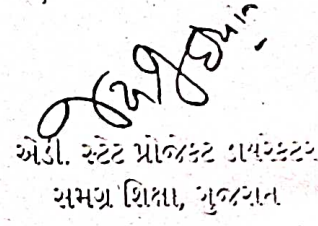 એડી. સ્ટેટ પ્રોજેક્ટ ડાયરેક્ટર
સમગ્ર શિક્ષા, ગુજરાત